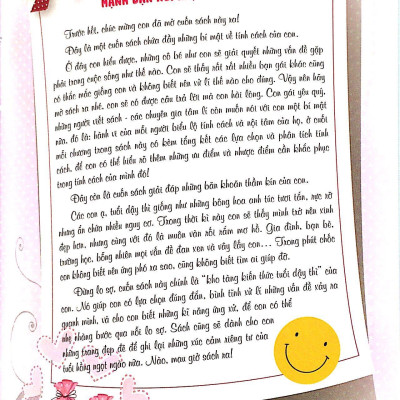 Trước hết, chúc mừng con đã mở cuốn sách này ra!
Đây là một cuốn sách chứa đầy những bí mật về tính cách của con.
Ở đây con hiểu được, những cô bé như con sẽ giải quyết những vấn đề gặp
phải trong cuộc sống như thế nào. Con sẽ thấy rất rất nhiều bạn gái khác cũng
có thắc mắc giống con và không biết nên xử lí thế nào cho đúng. Vậy nên hãy
mở sách ra nhé, con sẽ có được câu trả lời mà con hài lòng. Con gái yêu quý,
những người viết sách - các chuyên gia tâm lí còn muốn nói với con một bí mật
nữa, đó là: hành vi của mỗi người biểu lộ tính cách và nội tâm của họ, ở cuối
mỗi chương trong sách này có kèm tổng kết các lựa chọn và phân tích tính
cách, để con có thể hiểu rõ thêm những ưu điểm và nhược điểm cần khắc phục
trong tính cách của mình đó!
Đây còn là cuốn sách giải đáp những băn khoăn thầm kín của con.
Các con ạ, tuổi dậy thì giống như những bông hoa anh túc tươi tắn, rực rỡ
nhưng ẩn chứa nhiều nguy cơ. Trong thời kì này con sẽ thấy mình trở nên xinh
đẹp hơn, nhưng cùng với đó là muôn vàn rối rắm mơ hồ. Gia đình, bạn bè,
trường học, bỗng nhiên mọi vấn đề đan xen và vây lấy con... Trong phút chốc
con không biết nên ứng phó ra sao, cũng không biết tìm ai giúp đỡ.
Đừng lo sợ, cuốn sách này chính là "kho tàng kiến thức tuổi dậy thì" của
con. Nó giúp con có lựa chọn đúng đắn, bình tĩnh xử lí những vấn đề xảy ra
quanh mình, và cho con biết những kĩ năng ứng xử, để con có thể
nhẹ nhàng bước qua nỗi lo sợ. Sách cũng sẽ dành cho con
những trang đẹp đẽ để ghi lại những xúc cảm riêng tư của
tuổi hồng ngọt ngào nữa. Nào, mau giở sách ra!